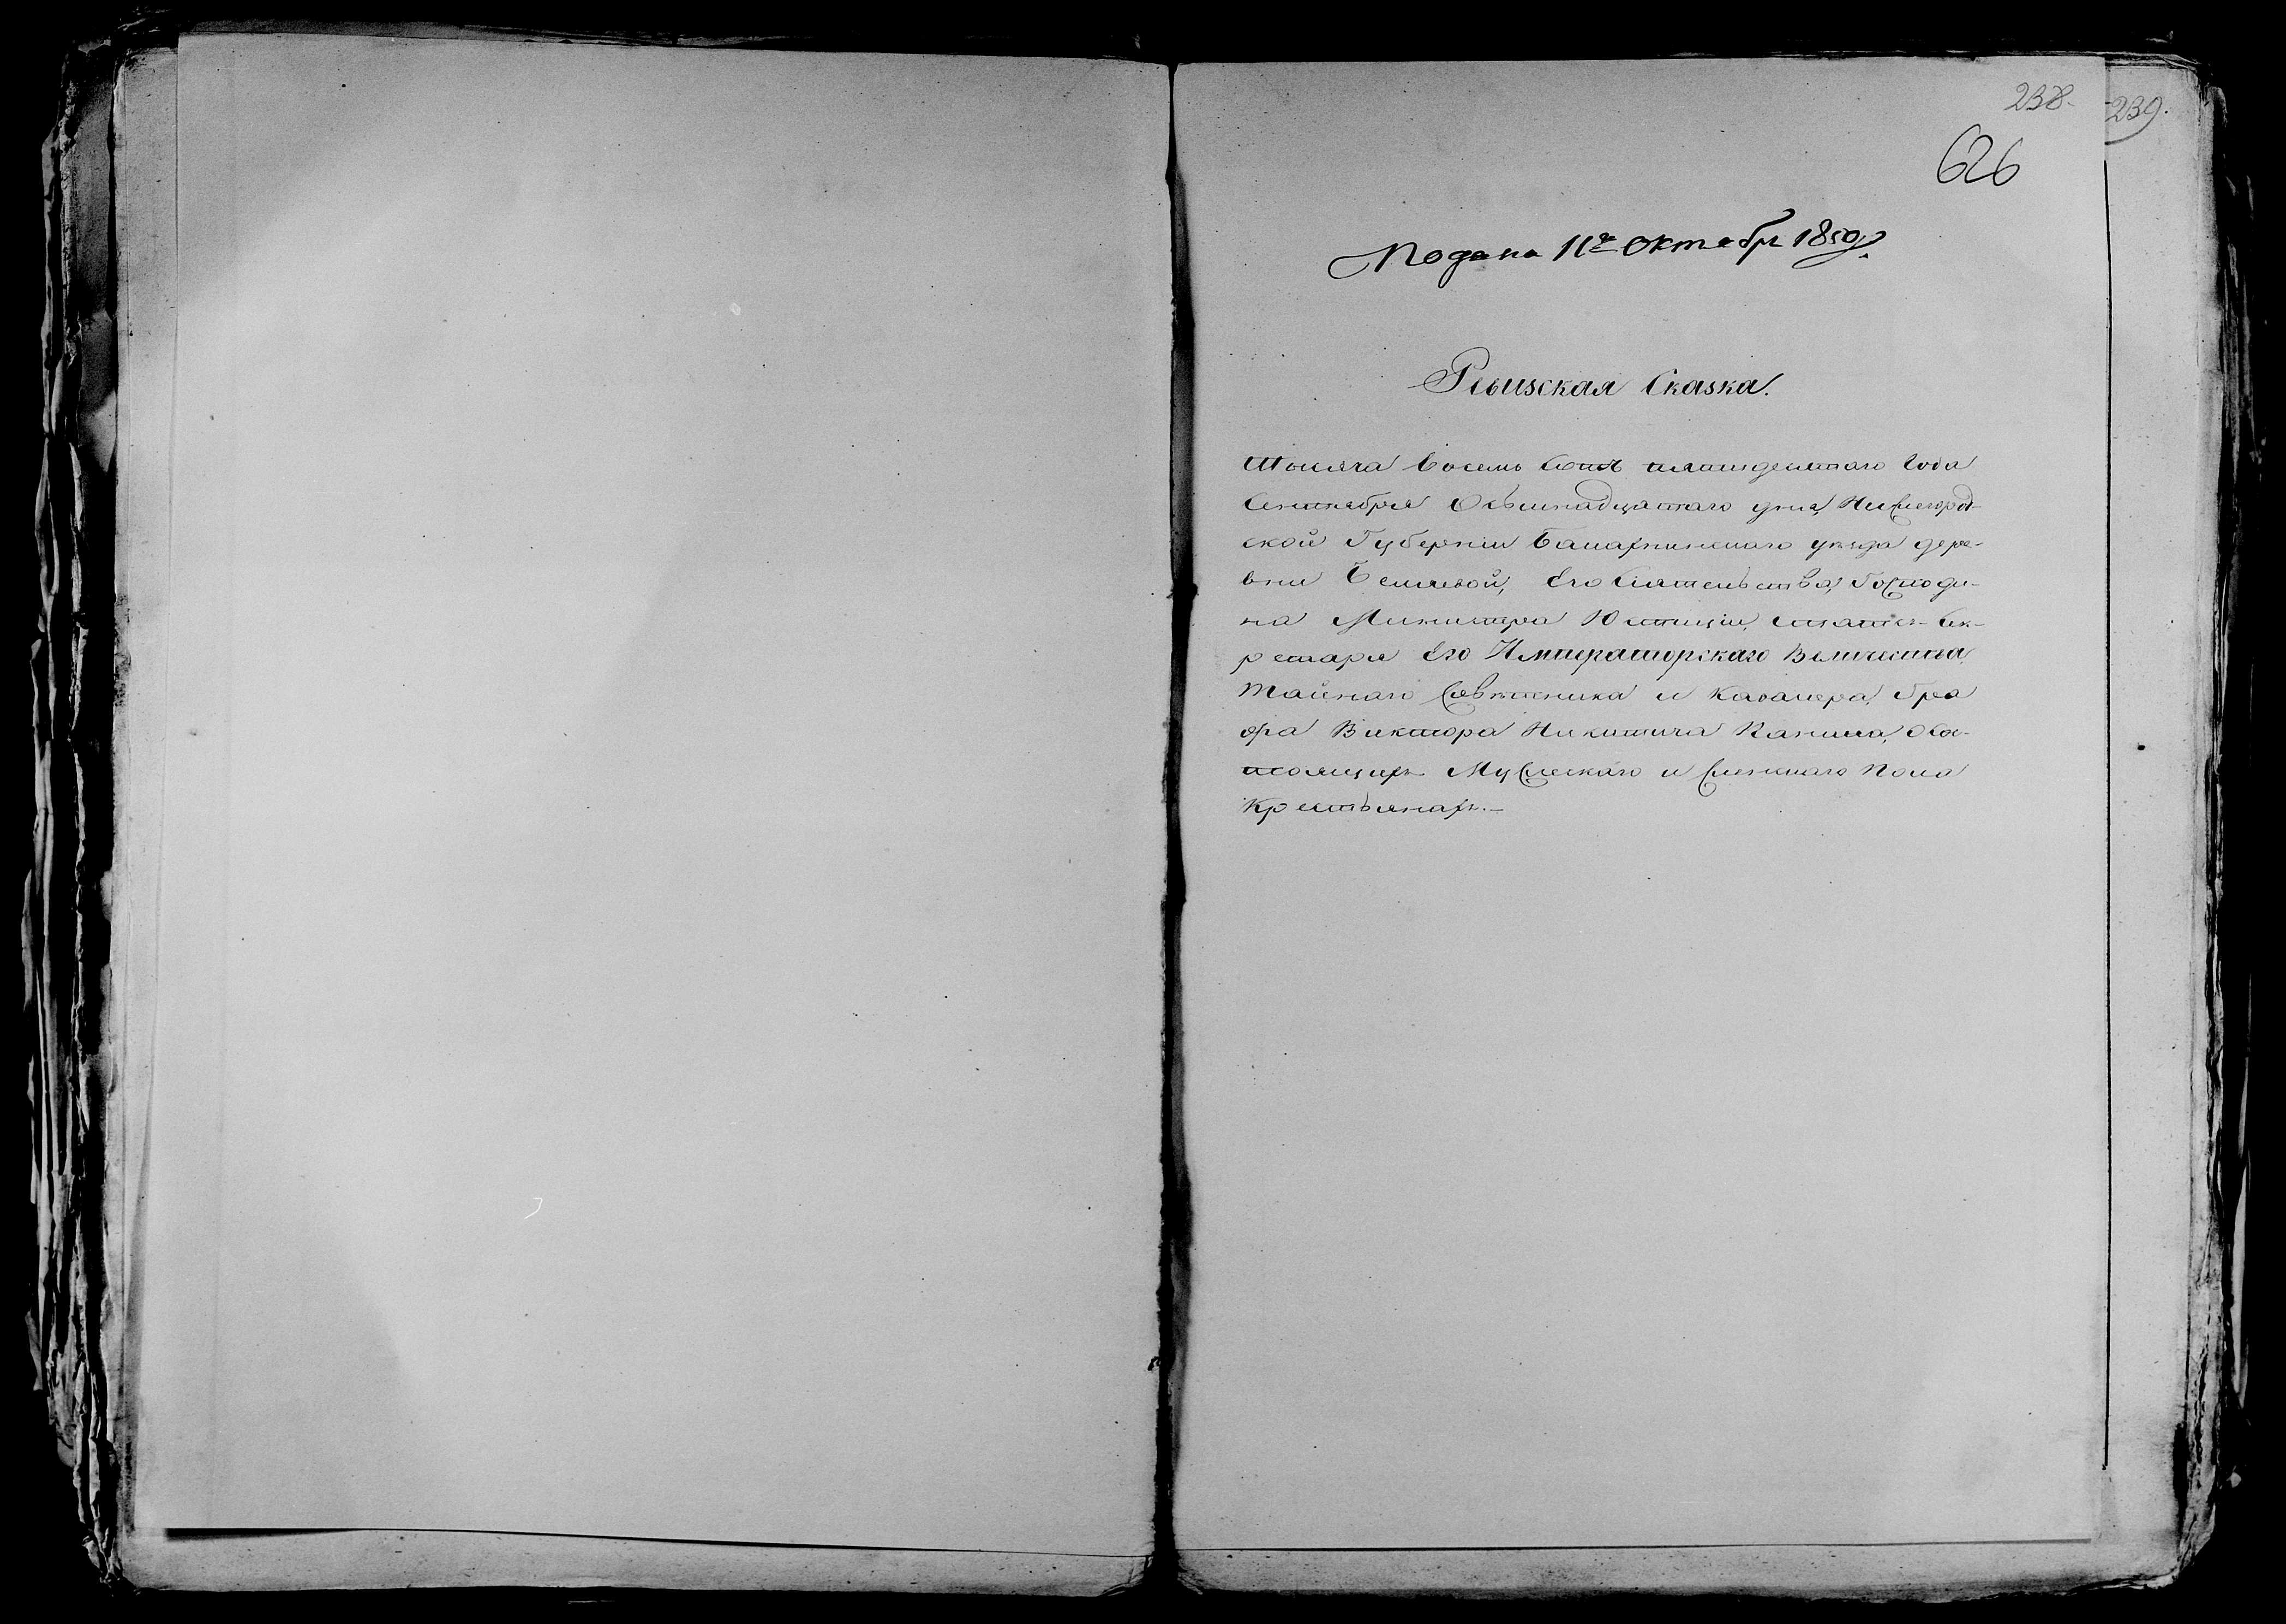 238.
239.
626
Подана 11го Октебря 1850г.
Ревизская Сказка.
Тысяча восемь сотъ пятидесятаго года
Сентября Осьмнадцатаго дня, Нижегород-
ской Губерніи Балахнинскаго уѣзда дере-
вни Беляевой, Его Сіятельства, Господи-
на Министра Юстиціи, статсъ-Сек-
ретаря Его Императорскаго Величества,
Тайнаго Совѣтника и Кавалера, Гра
фа Виктора Никитича Панина, о со-
тоящихъ Мужескаго и Женскаго пола
Крестьянахъ.—